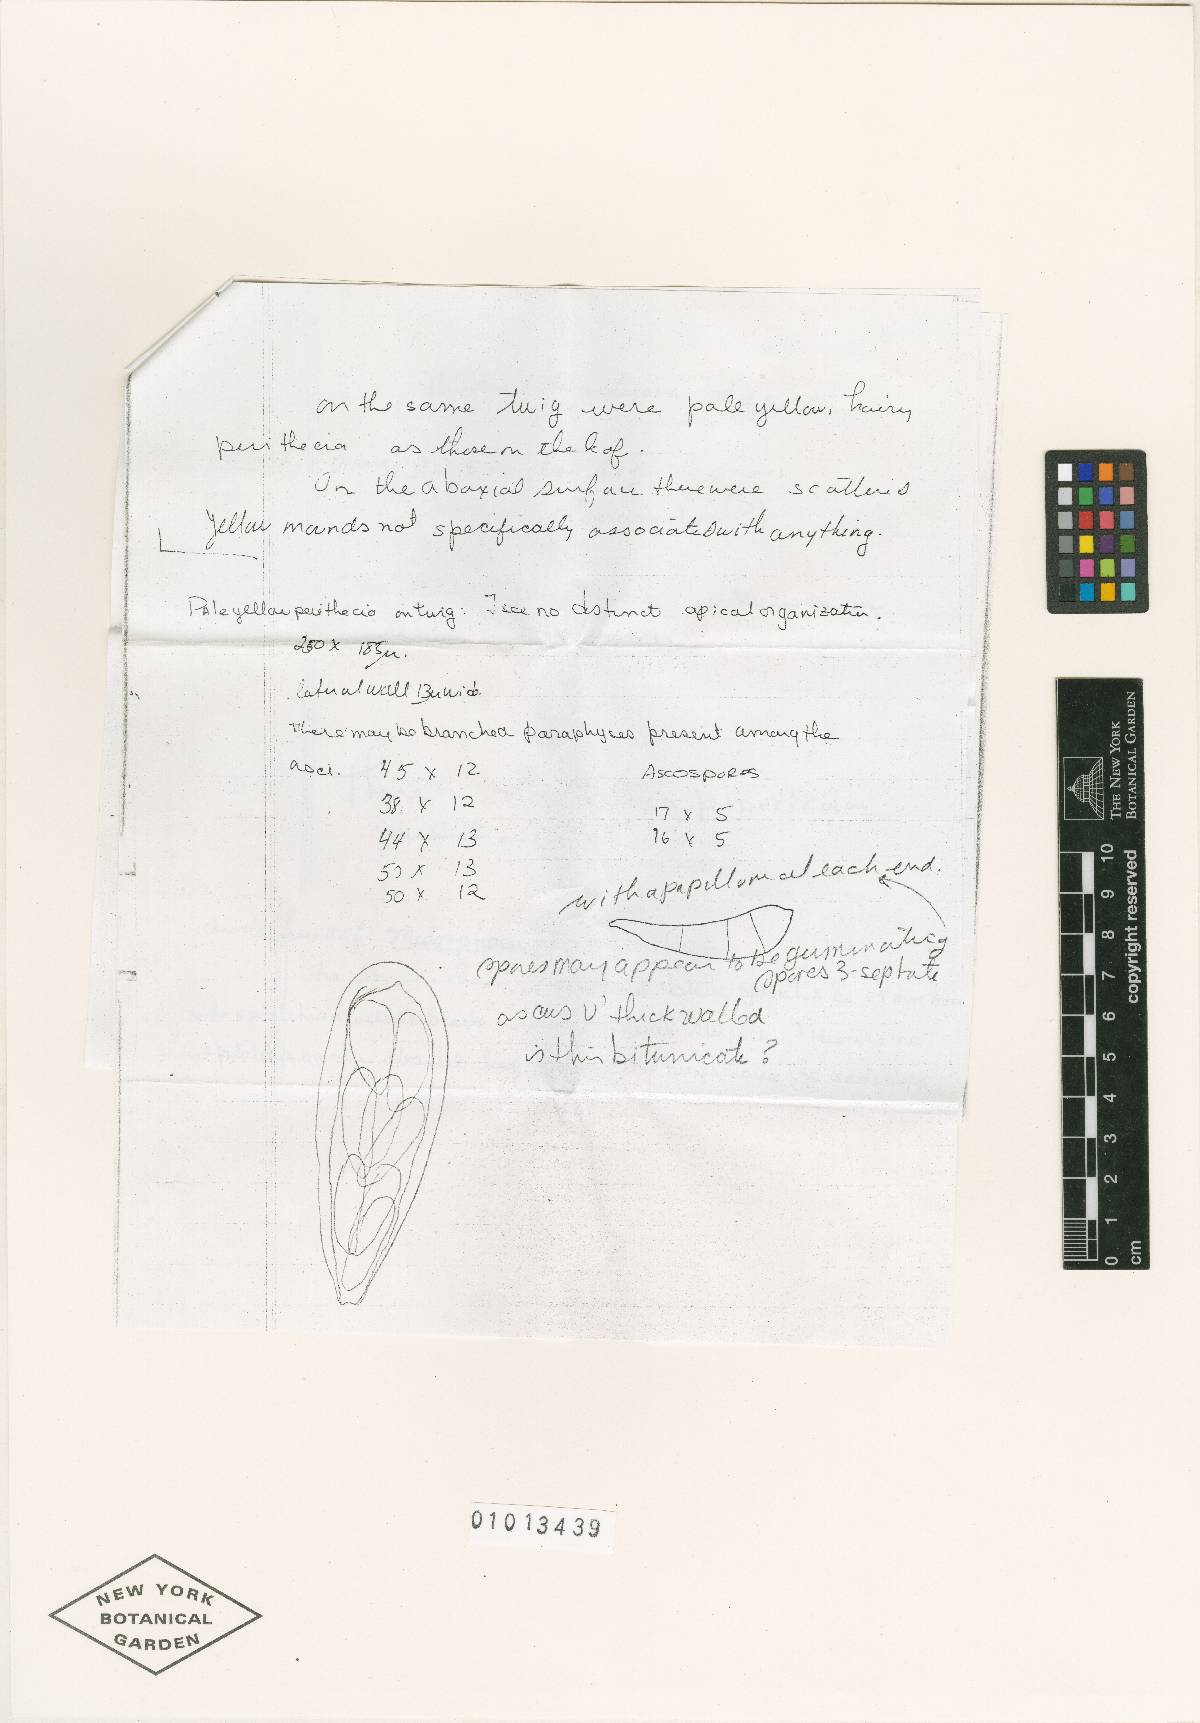 on the same twig were pale yellow, hairy
perithecia as those on the leaf.
On the abaxial surface there were scattered
Yellow mounds not specifically associated with anything.
Pale yellow perithecia on twig: I see no distinct apical organization.
250 x 185µ.
lateral wall 13µ wide
There may be branched paraphyses present among the
asci. 45 x 12
38 x 12
44 x 13
50 x 13
50 x 12
Ascospores
17 x 5
16 x 5
with a papilloma at each end.
spores may appear to be germinating
spores 3-septate
ascus V' thick walled
is this bitunicate?
01013439
NEW YORK
BOTANICAL
GARDEN
THE NEW YORK
BOTANICAL GARDEN
copyright reserved
0 1 2 3 4 5 6 7 8 9 10
cm